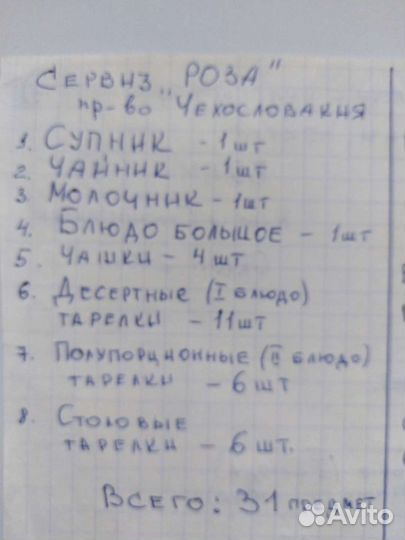 Сервиз „РОЗА"
пр-во Чехословакия
1. Супник - 1 шт
2. Чайник - 1 шт
3 Молочник - 1 шт
4. Блюдо большое - 1 шт
5. Чашки - 4 шт
6. Десертные (I блюдо)
тарелки - 11 шт
7. Полупорционные (II блюдо)
тарелки - 6 шт
8. Столовые
тарелки - 6 шт.
Всего: 31 предмет
Avito